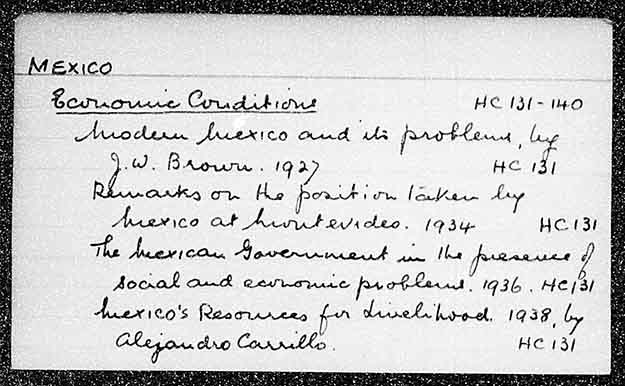 MEXICO
Economic Conditions HC 131-140
Modern Mexico and its problems, by
J.W. Brown. 1927 HC 131
Remarks on the position taken by
Mexico at Montevideo. 1934 HC 131
The Mexican Government in the presence of
social and economic problems. 1936. HC 131
Mexico's Resources for Livelihood. 1938, by
Alejandro Carrillo. HC 131